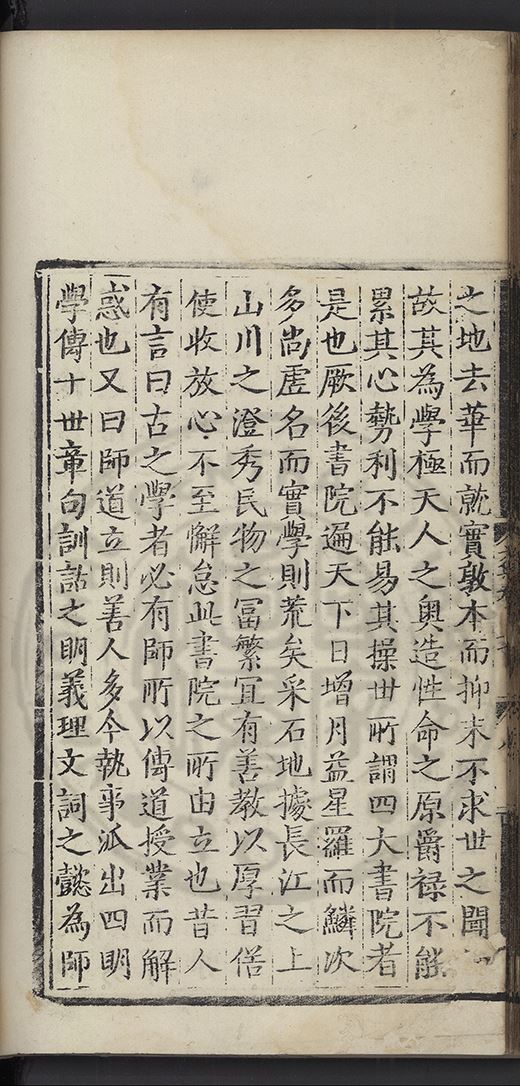 之地去華而就實敦本而抑末不求世之聞
故其為學極天人之奧造性命之原爵祿不能
累其心勢利不能易其操世所謂四大書院者
是也厥後書院遍天下日增月益星羅而鱗次
多尚虛名而實學則荒矣采石地據長江之上
山川之澄秀民物之冨繁宜有善教以厚習俗
使收放心不至懈怠此書院之所由立也昔人
有言曰古之學者必有師所以傳道授業而解
惑也又曰師道立則善人多今執事派出四明
學傳十世章句訓詁之明義理文詞之懿為師